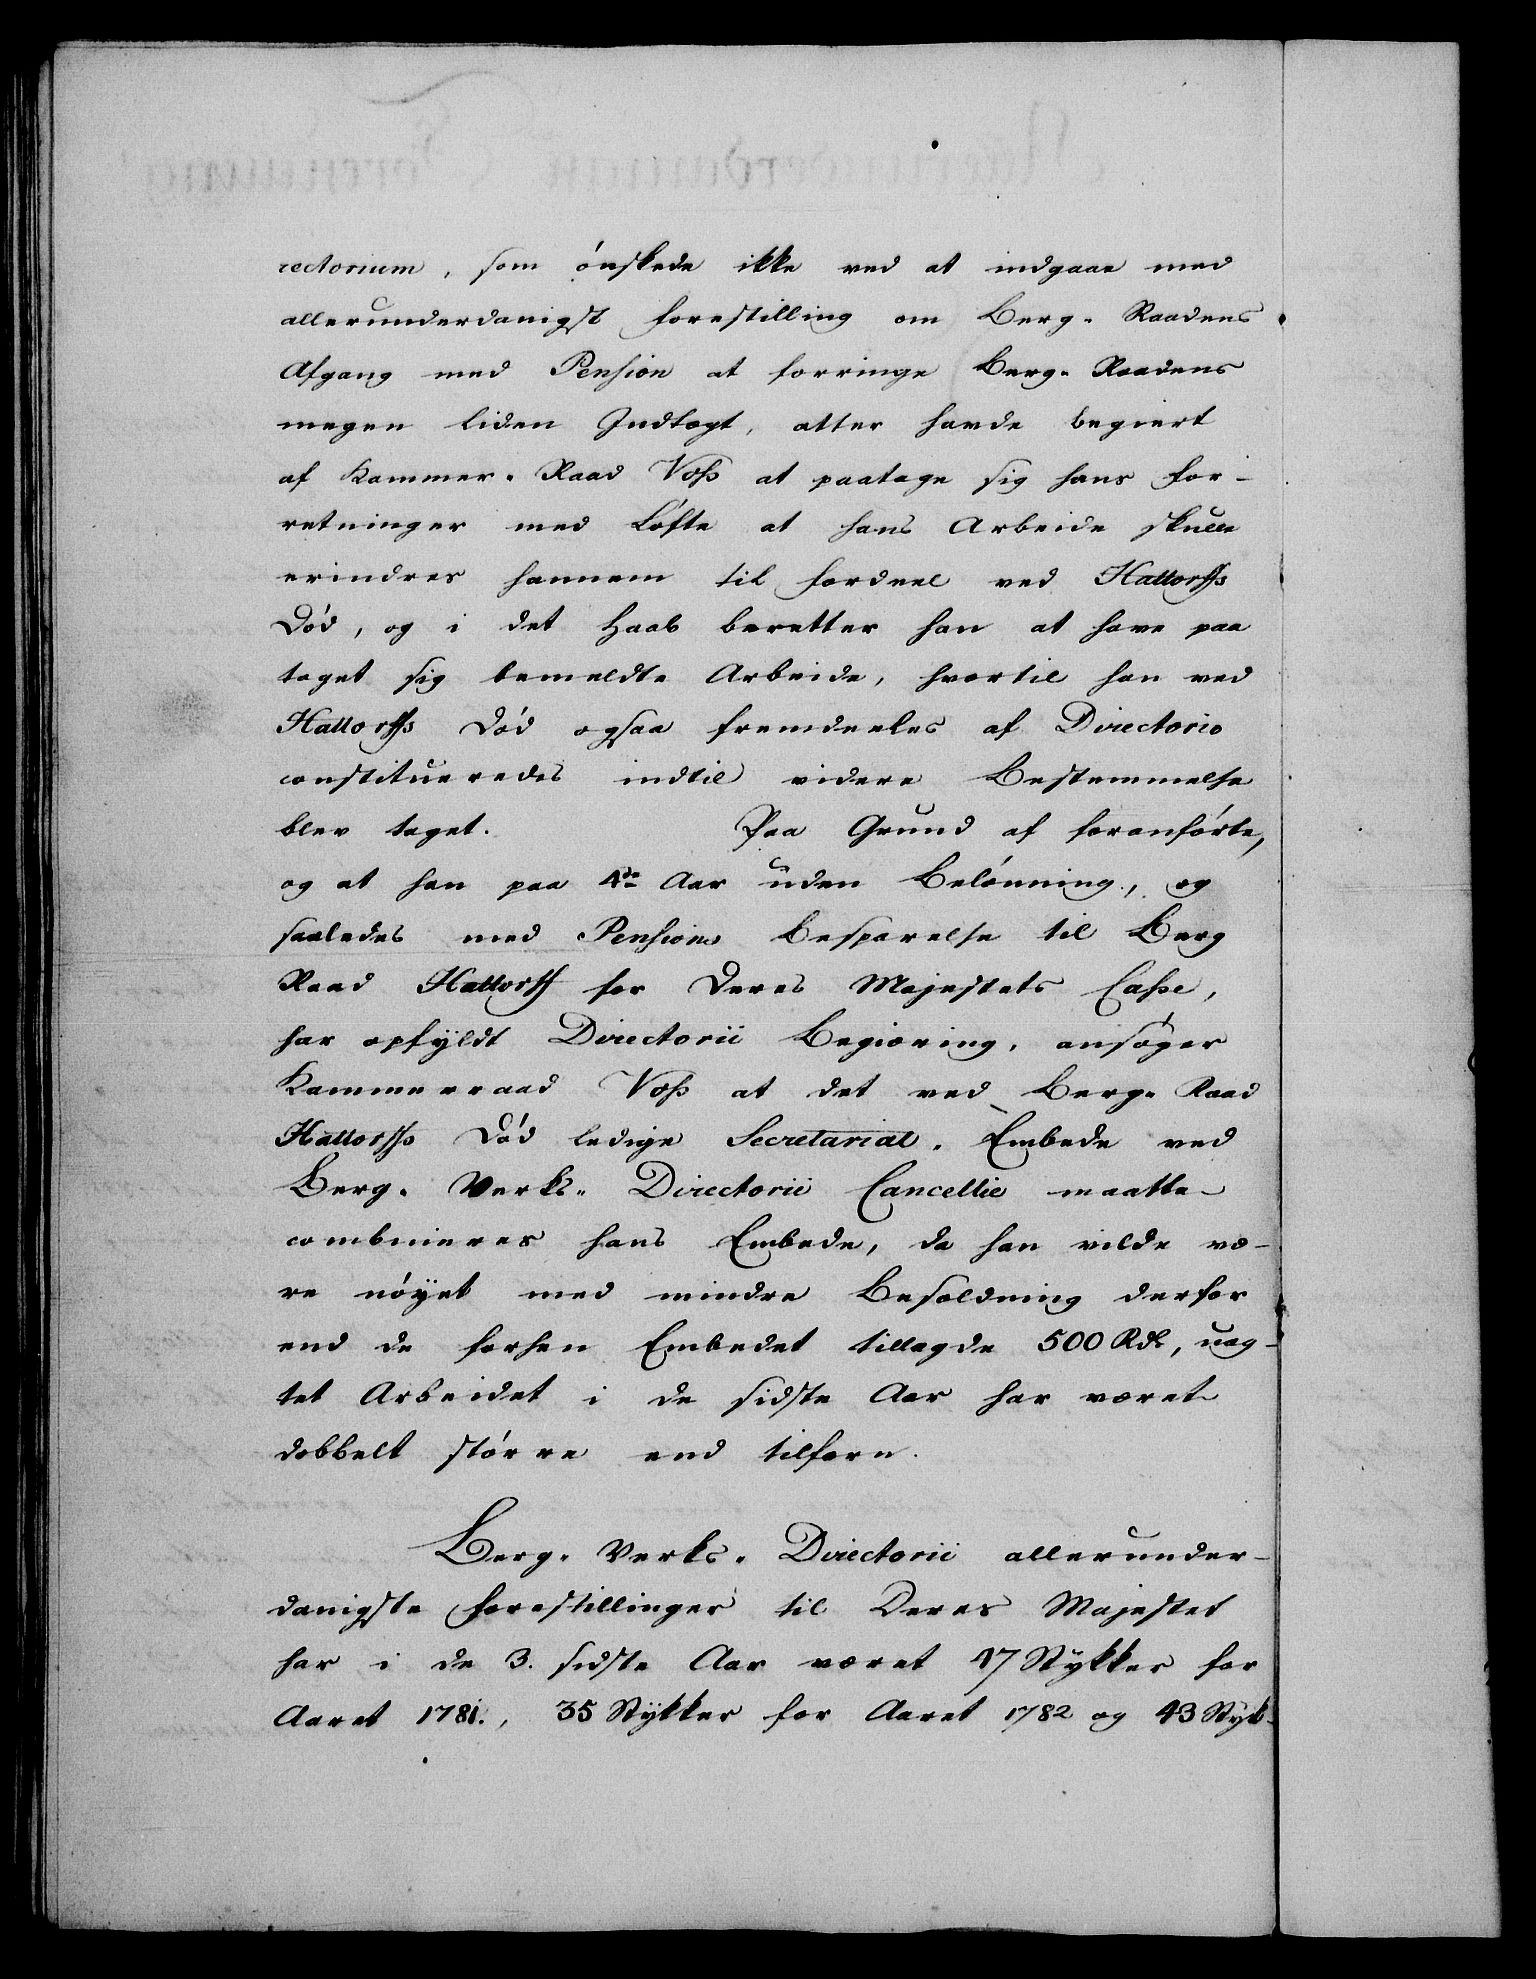 rectorium, som ønskede ikke ved at indgaae med
allerunderdanigst forestilling om Berg-Raadens
Afgang med Pension at forringe Berg-Raadens
megen liden Indtægt, atter havde begiert
af Kammer-Raad Voss at paatage sig hans for-
retninger med Løfte at hans Arbeide skulle
erindres hannem til fordeel ved Hattorffs
Død, og i det Haab beretter han at have paa
taget sig bemeldte Arbeide, hvortil han ved
Hattorffs Død ogsaa fremdeeles af Directorio
constitueredes indtil videre Bestemmelse
blev taget. Paa Grund af foranførte,
og at han paa 4de Aar uden Belønning, og
saaledes med Pensions Besparelse til Berg
Raad Hattorff for Deres Majestets Casse,
har opfyldt Directorii Begiæring, ansøger
Kammerraad Voss at det ved Berg-Raad
Hattorffs Død ledige Secretariat-Embede ved
Berg-Verks-Directorii Cancellie maatte
combineres hans Embede, da han vilde væ-
re nøyet med mindre Besoldning derfor
end de forhen Embedet tillagde 500 Rdr, uag-
tet Arbeidet i de sidste Aar har været
dobbelt større end tilforn.
Berg-Verks-Directorii allerunder-
danigste forestillinger til Deres Majestet
har i de 3. sidste Aar været 47 Stykker for
Aaret 1781., 35 Stykker for Aaret 1782 og 43 Styk-